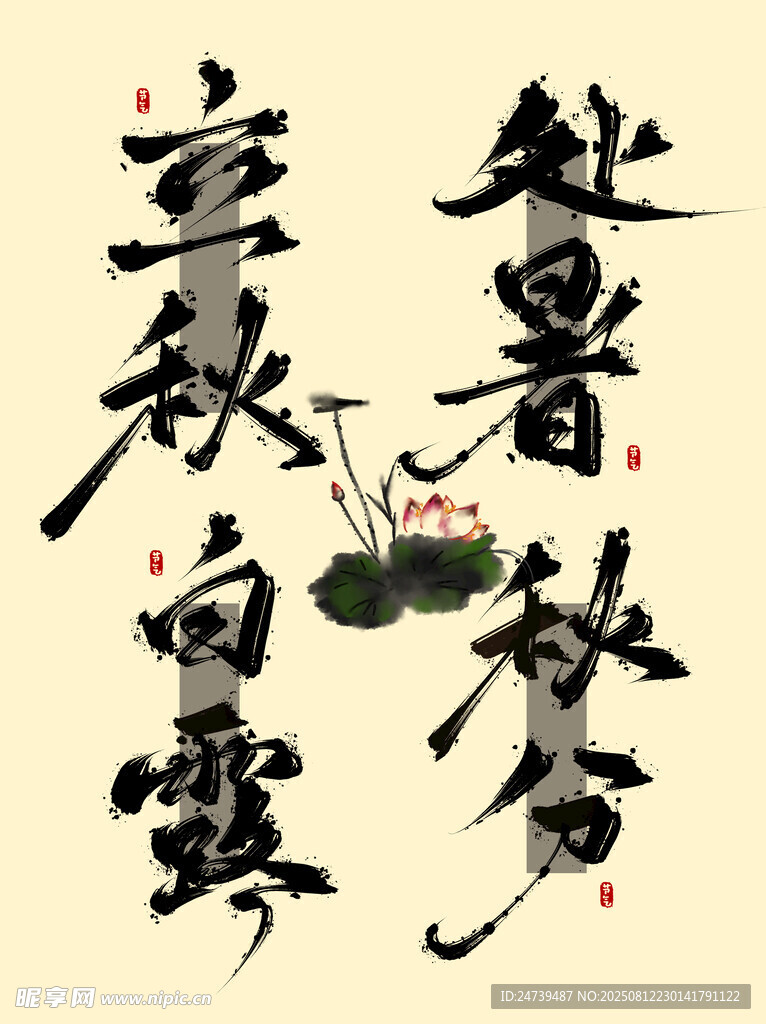 立秋
节气
处暑
节气
白露
节气
秋分
节气
昵享网 www.nipic.cn
ID:24739487 NO:20250812230141791122